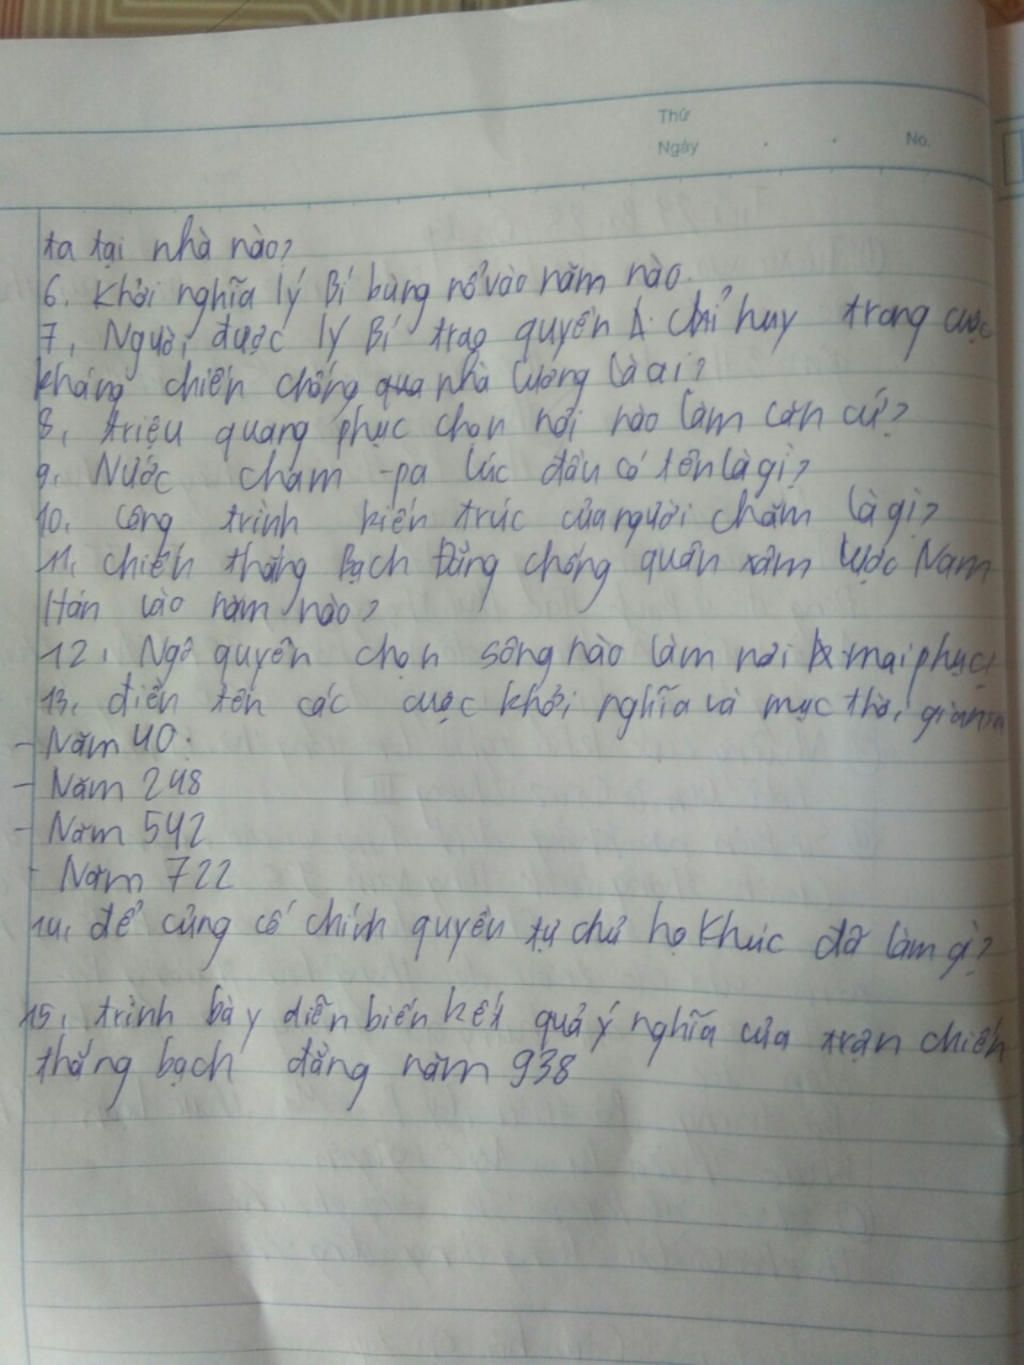 Thứ
Ngày . . No.
ta tại nhà nào?
6. Khởi nghĩa lý Bí bùng nổ vào năm nào.
7, Người được lý Bí trao quyền chỉ huy trong cuộc
kháng chiến chống qua nhà lương là ai?
8, triệu quang phục chọn nơi nào làm căn cứ?
9. Nước cham -pa lúc đầu có tên là gì?
10, công trình kiến trúc của người chăm là gì?
11, chiến thắng Bạch Đằng chống quân xâm lược Nam
Hán vào năm nào?
12, Ngô quyền chọn sông nào làm nơi mai phục
13, điền tên các cuộc khởi nghĩa và mục thời gian
- Năm 40.
- Năm 248
- Năm 542
- Năm 722
14, để củng cố chính quyền tự chủ họ Khúc đã làm gì?
15, trình bày diễn biến kết quả ý nghĩa của trận chiến
thắng bạch đằng năm 938